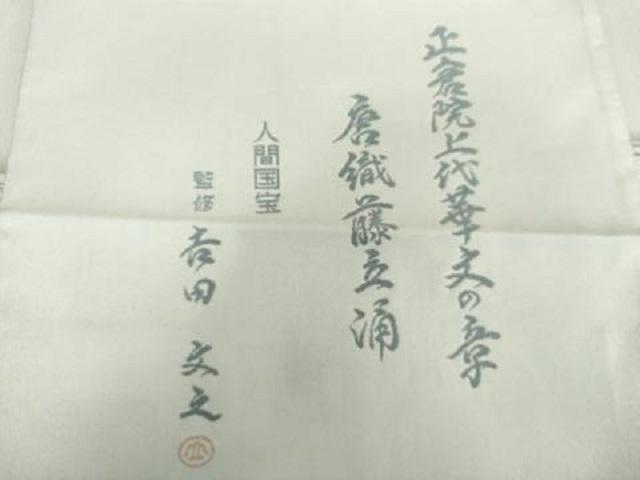 正倉院上代華文の章
唐織藤立涌
人間国宝
監修 吉田 文之